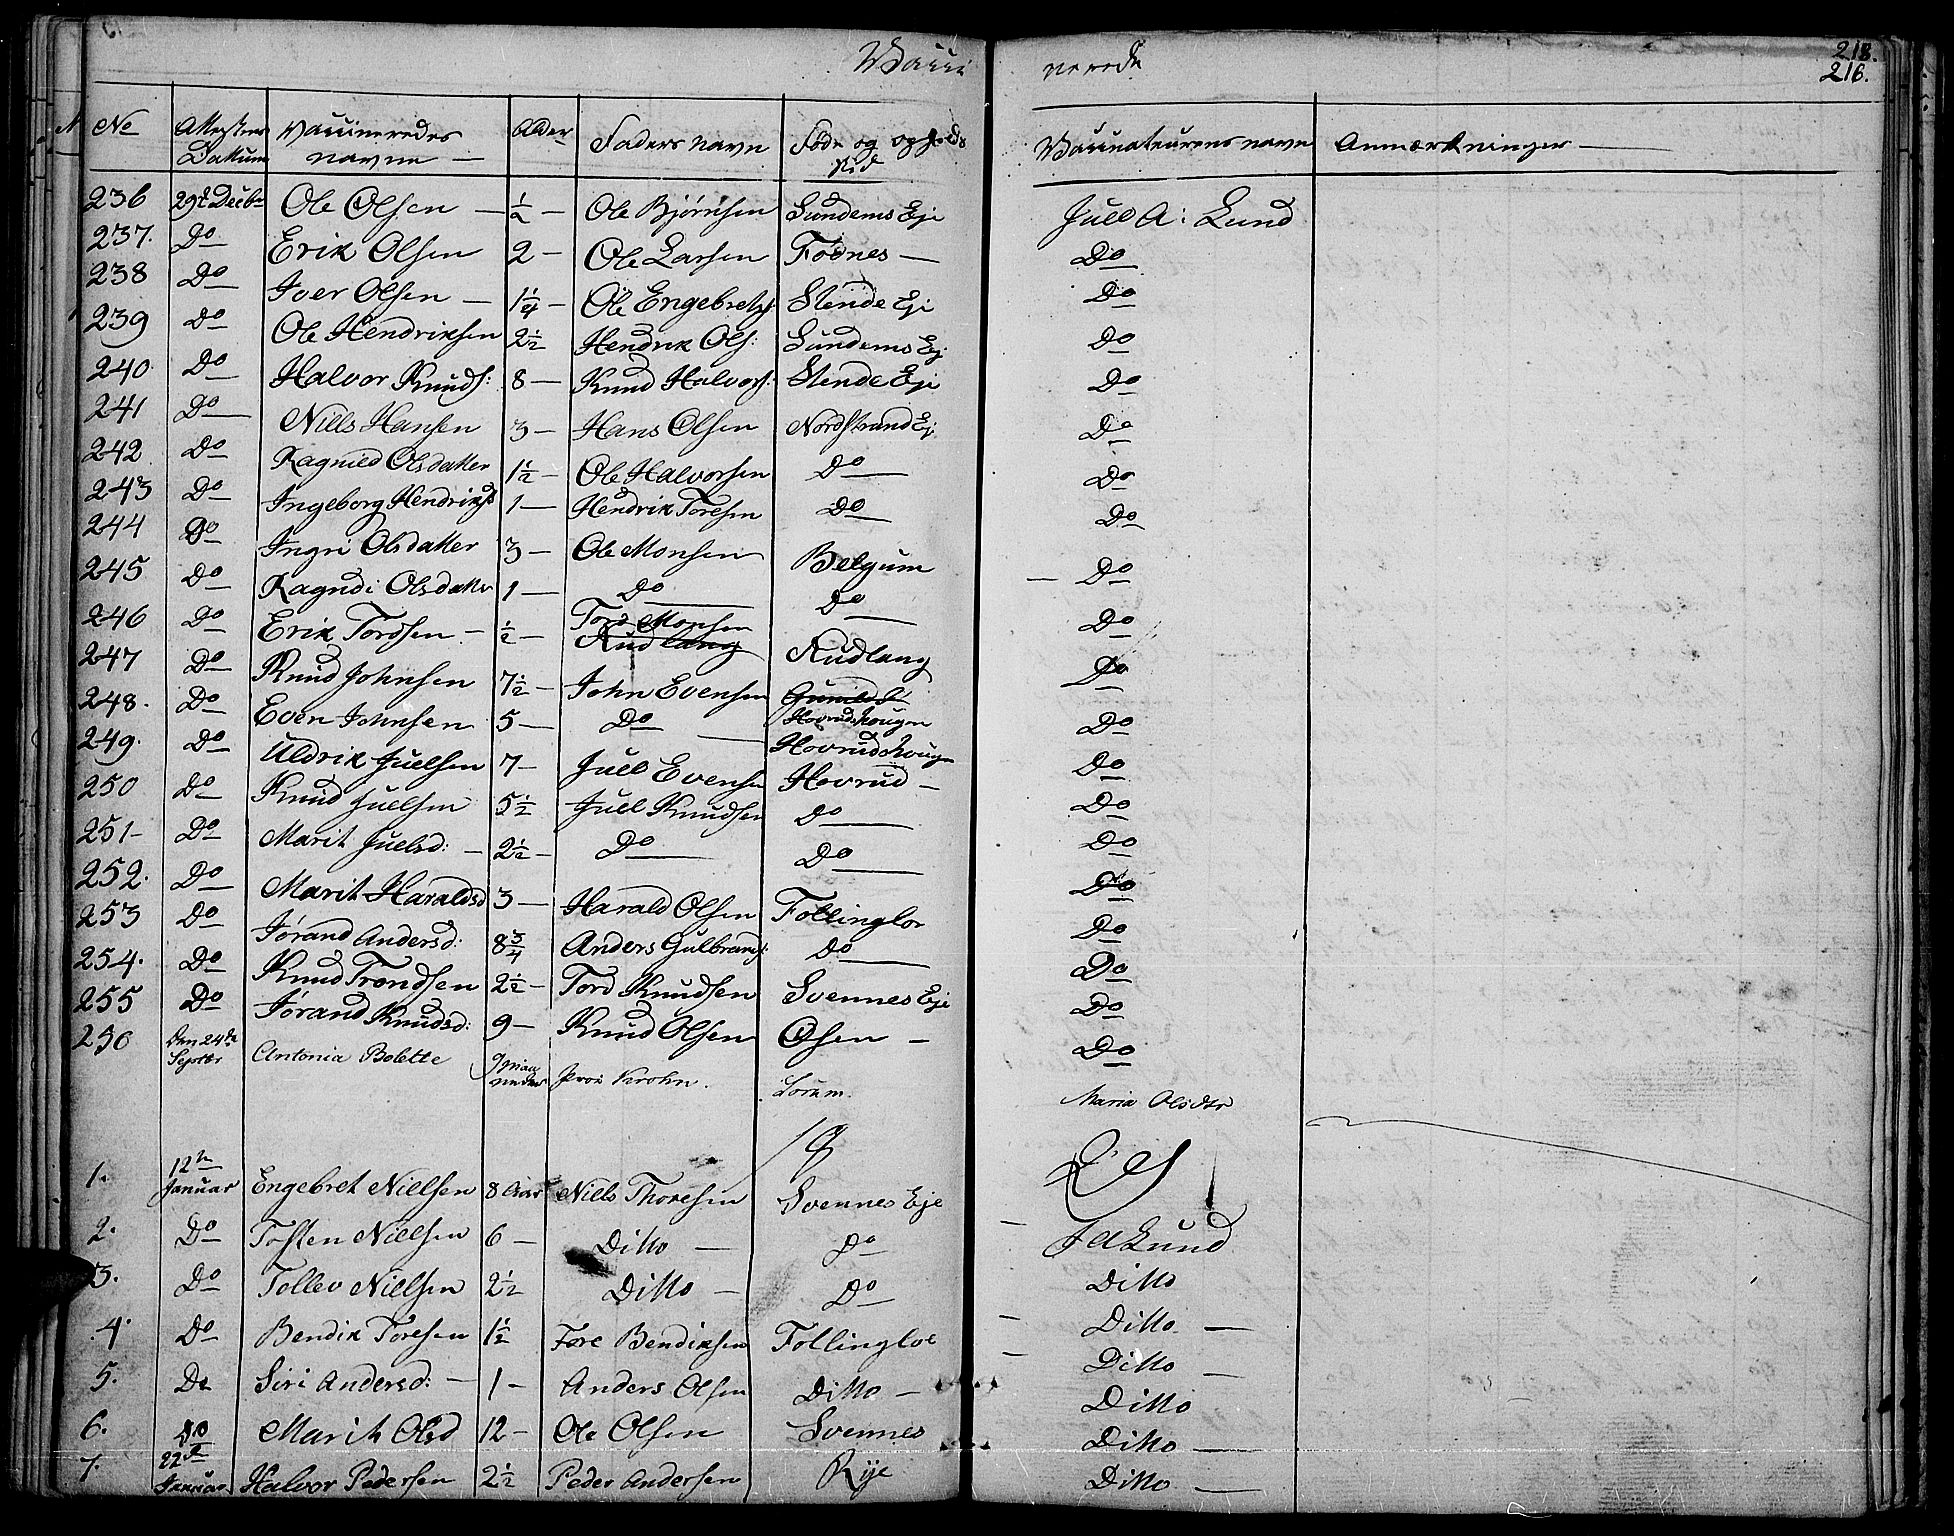 Vacci nerede
218.
216.
No Attestens Datum Vaccineredes navne — Alder Faders navn Føde og opholds sted Vaccinateurens navn Anmærkninger —
236 29de Decbr Ole Olsen — ½ — Ole Bjørnsen Sundems Eje Juel A: Lund
237. Do Erik Olsen 2 — Ole Larsen Fodnes — Do
238 Do Iver Olsen — 1¼ — Ole Engebrets: Stende Eje Do
239 Do Ole Hendriksen 2½ Hendrik Ols: Sundems Ej Do
240 Do Halvor Knuds: 8 — Knud Halvors: Stende Eje Do
241 Do Niels Hansen 3 — Hans Olsen Nordstrand Ej Do
242 Do Ragnild Olsdatter 1½ — Ole Halvorsen Do Do
243 Do Ingeborg Hendriksd 1 — Hendrik Toresen Do Do
244 Do Ingri Olsdatter 3 — Ole Monsen Belgum — Do
245 Do Ragndi Olsdatter 1 — Do Do Do
246 Do Erik Tordsen — ½ — Tord Monsen Rudlang Rudlang Do
247 Do Knud Johnsen 7½ — John Evensen Hovrudshougen Do
248. Do Even Johnsen 5 — Do Hovrudshougn Do
249. Do Uldrik Juelsen 7 — Juel Evensen Hovrud — Do
250 Do Knud Juelsen 5½ Juel Knudsen Do Do
251 — Do Marit Juelsd: — 2½ — Do Do Do
252. Do Marit Haraldsd 3 — Harald Olsen Follinglo Do
253 Do Jørand Andersd: 8¾ Anders Gulbrands: Do Do
254. Do Knud Trondsen 2½ — Tord Knudsen Svennes Eje Do
255 Do Jørand Knudsd: 9 — Knud Olsen Osen — Do
256 Den 24de Septbr Antonia Bolette 9 maaneder Krohn. Lorum. Maria Olsdtr
18
1. 12te Januar Engebret Nielsen 8 Aar Niels Thoresen Svennes Eje J A Lund
2. Do Tosten Nielsen 6 — Ditto — Do Ditto
3. Do Tollev Nielsen 2½ Ditto — Do Ditto —
4. Do Bendik Toresen 1½ Tore Bendiksen Follingloe Ditto —
5. Do Siri Andersd: — 1 — Anders Olsen Ditto — Ditto
6. Do Marit Olsd 12 — Ole Olsen Svennes Ditto —
7. 22de Januar Halvor Pedersen 2½ Peder Andersen Rye Ditto —